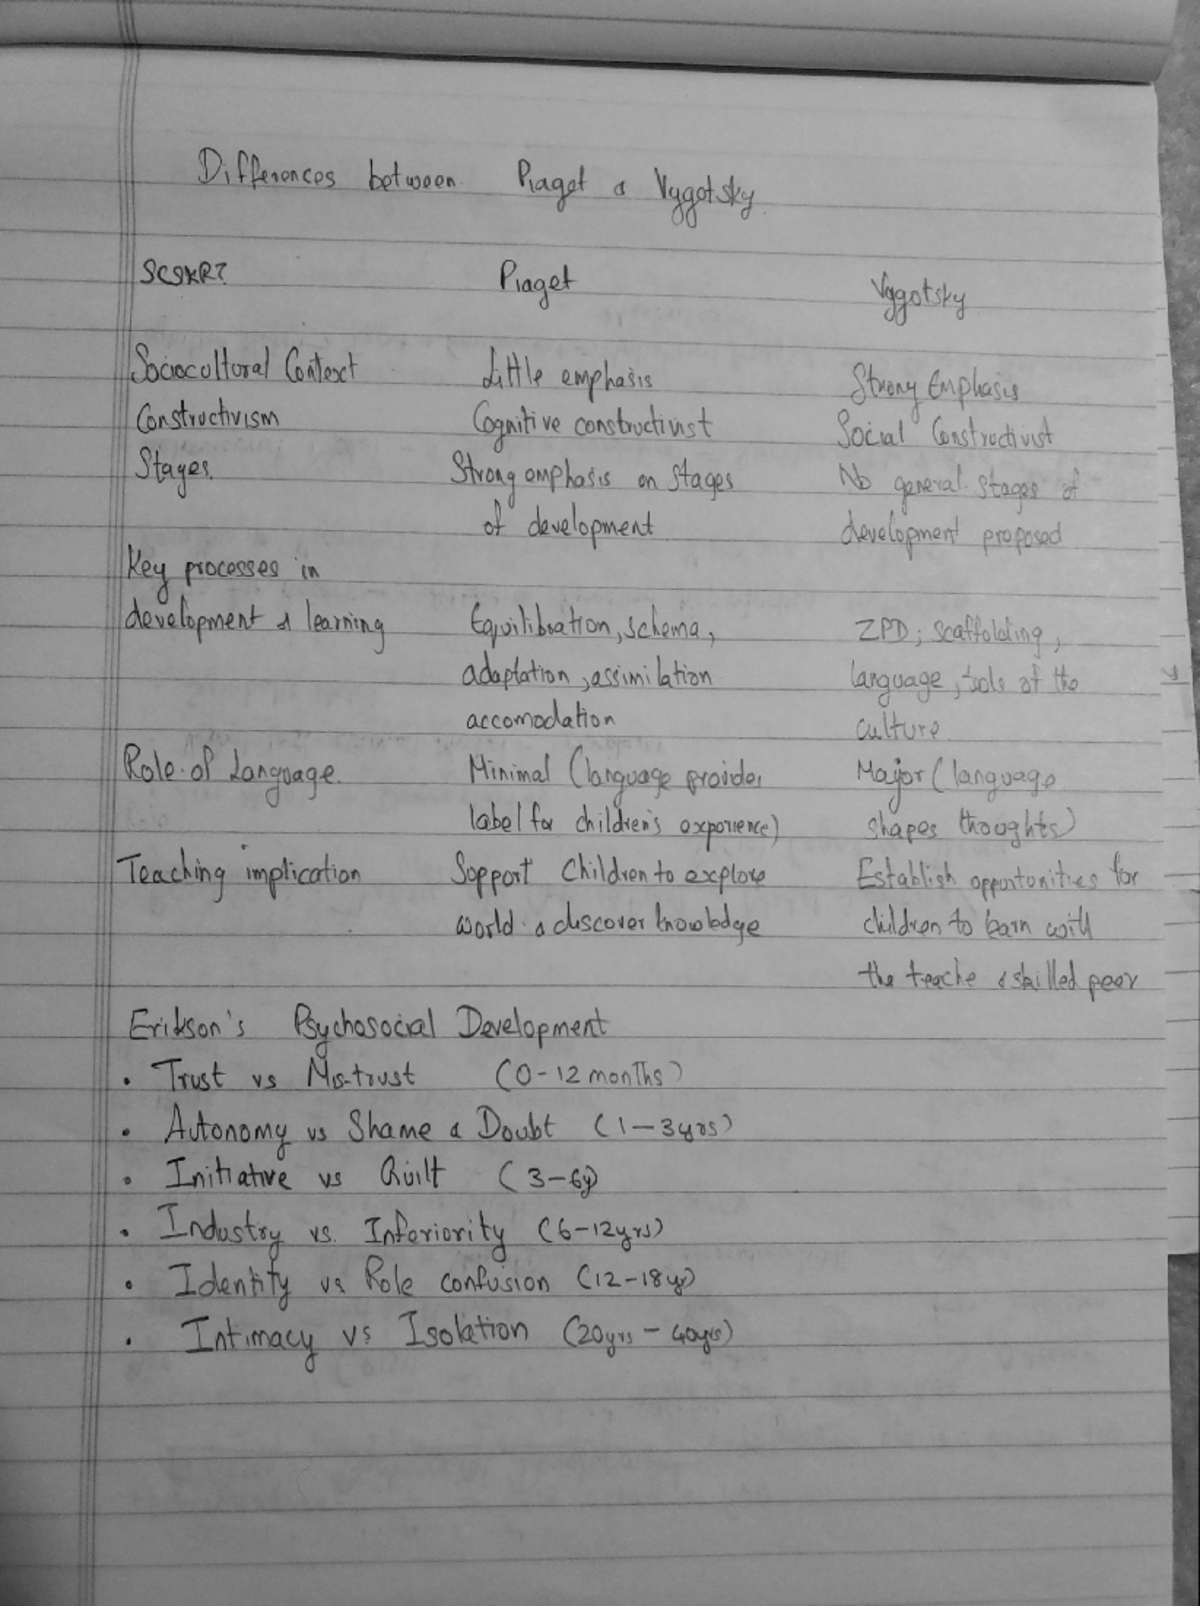 Differences between Piaget & Vygotsky
SCSKRT Piaget Vygotsky
Sociocultural Context Little emphasis Strong Emphasis
Constructivism Cognitive constructivist Social Constructivist
Stages. Strong emphasis on stages No general stages of
of development development proposed
Key processes in
development & learning Equilibration, schema, ZPD; scaffolding,
adaptation, assimilation language, tools of the
accomodation culture
Role of Language. Minimal (language provides Major (language
label for children's experience) shapes thoughts)
Teaching implication Support Children to explore Establish opportunities for
world & discover knowledge children to learn with
the teache & skilled peer
Erikson's Psychosocial Development
• Trust vs Mis-trust (0-12 months)
• Autonomy vs Shame & Doubt (1-3yrs)
• Initiative vs Guilt (3-6y)
• Industry vs. Inferiority (6-12yrs)
• Identity vs Role confusion (12-18yr)
• Intimacy vs Isolation (20yrs - 40yrs)